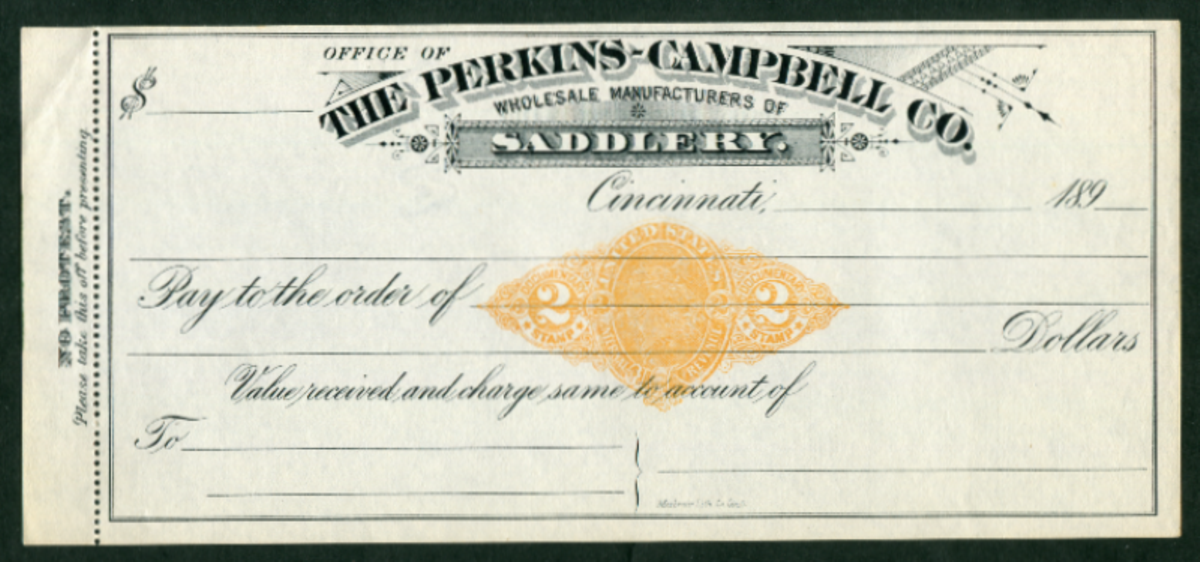 OFFICE OF
THE PERKINS-CAMPBELL CO.
WHOLESALE MANUFACTURERS OF
SADDLERY.
$
Cincinnati, 189
Pay to the order of
Dollars
Value received and charge same to account of
To
NO PROTEST.
Please take this off before presenting
UNITED STATES
2 2
STAMP STAMP
INTERNAL REVENUE